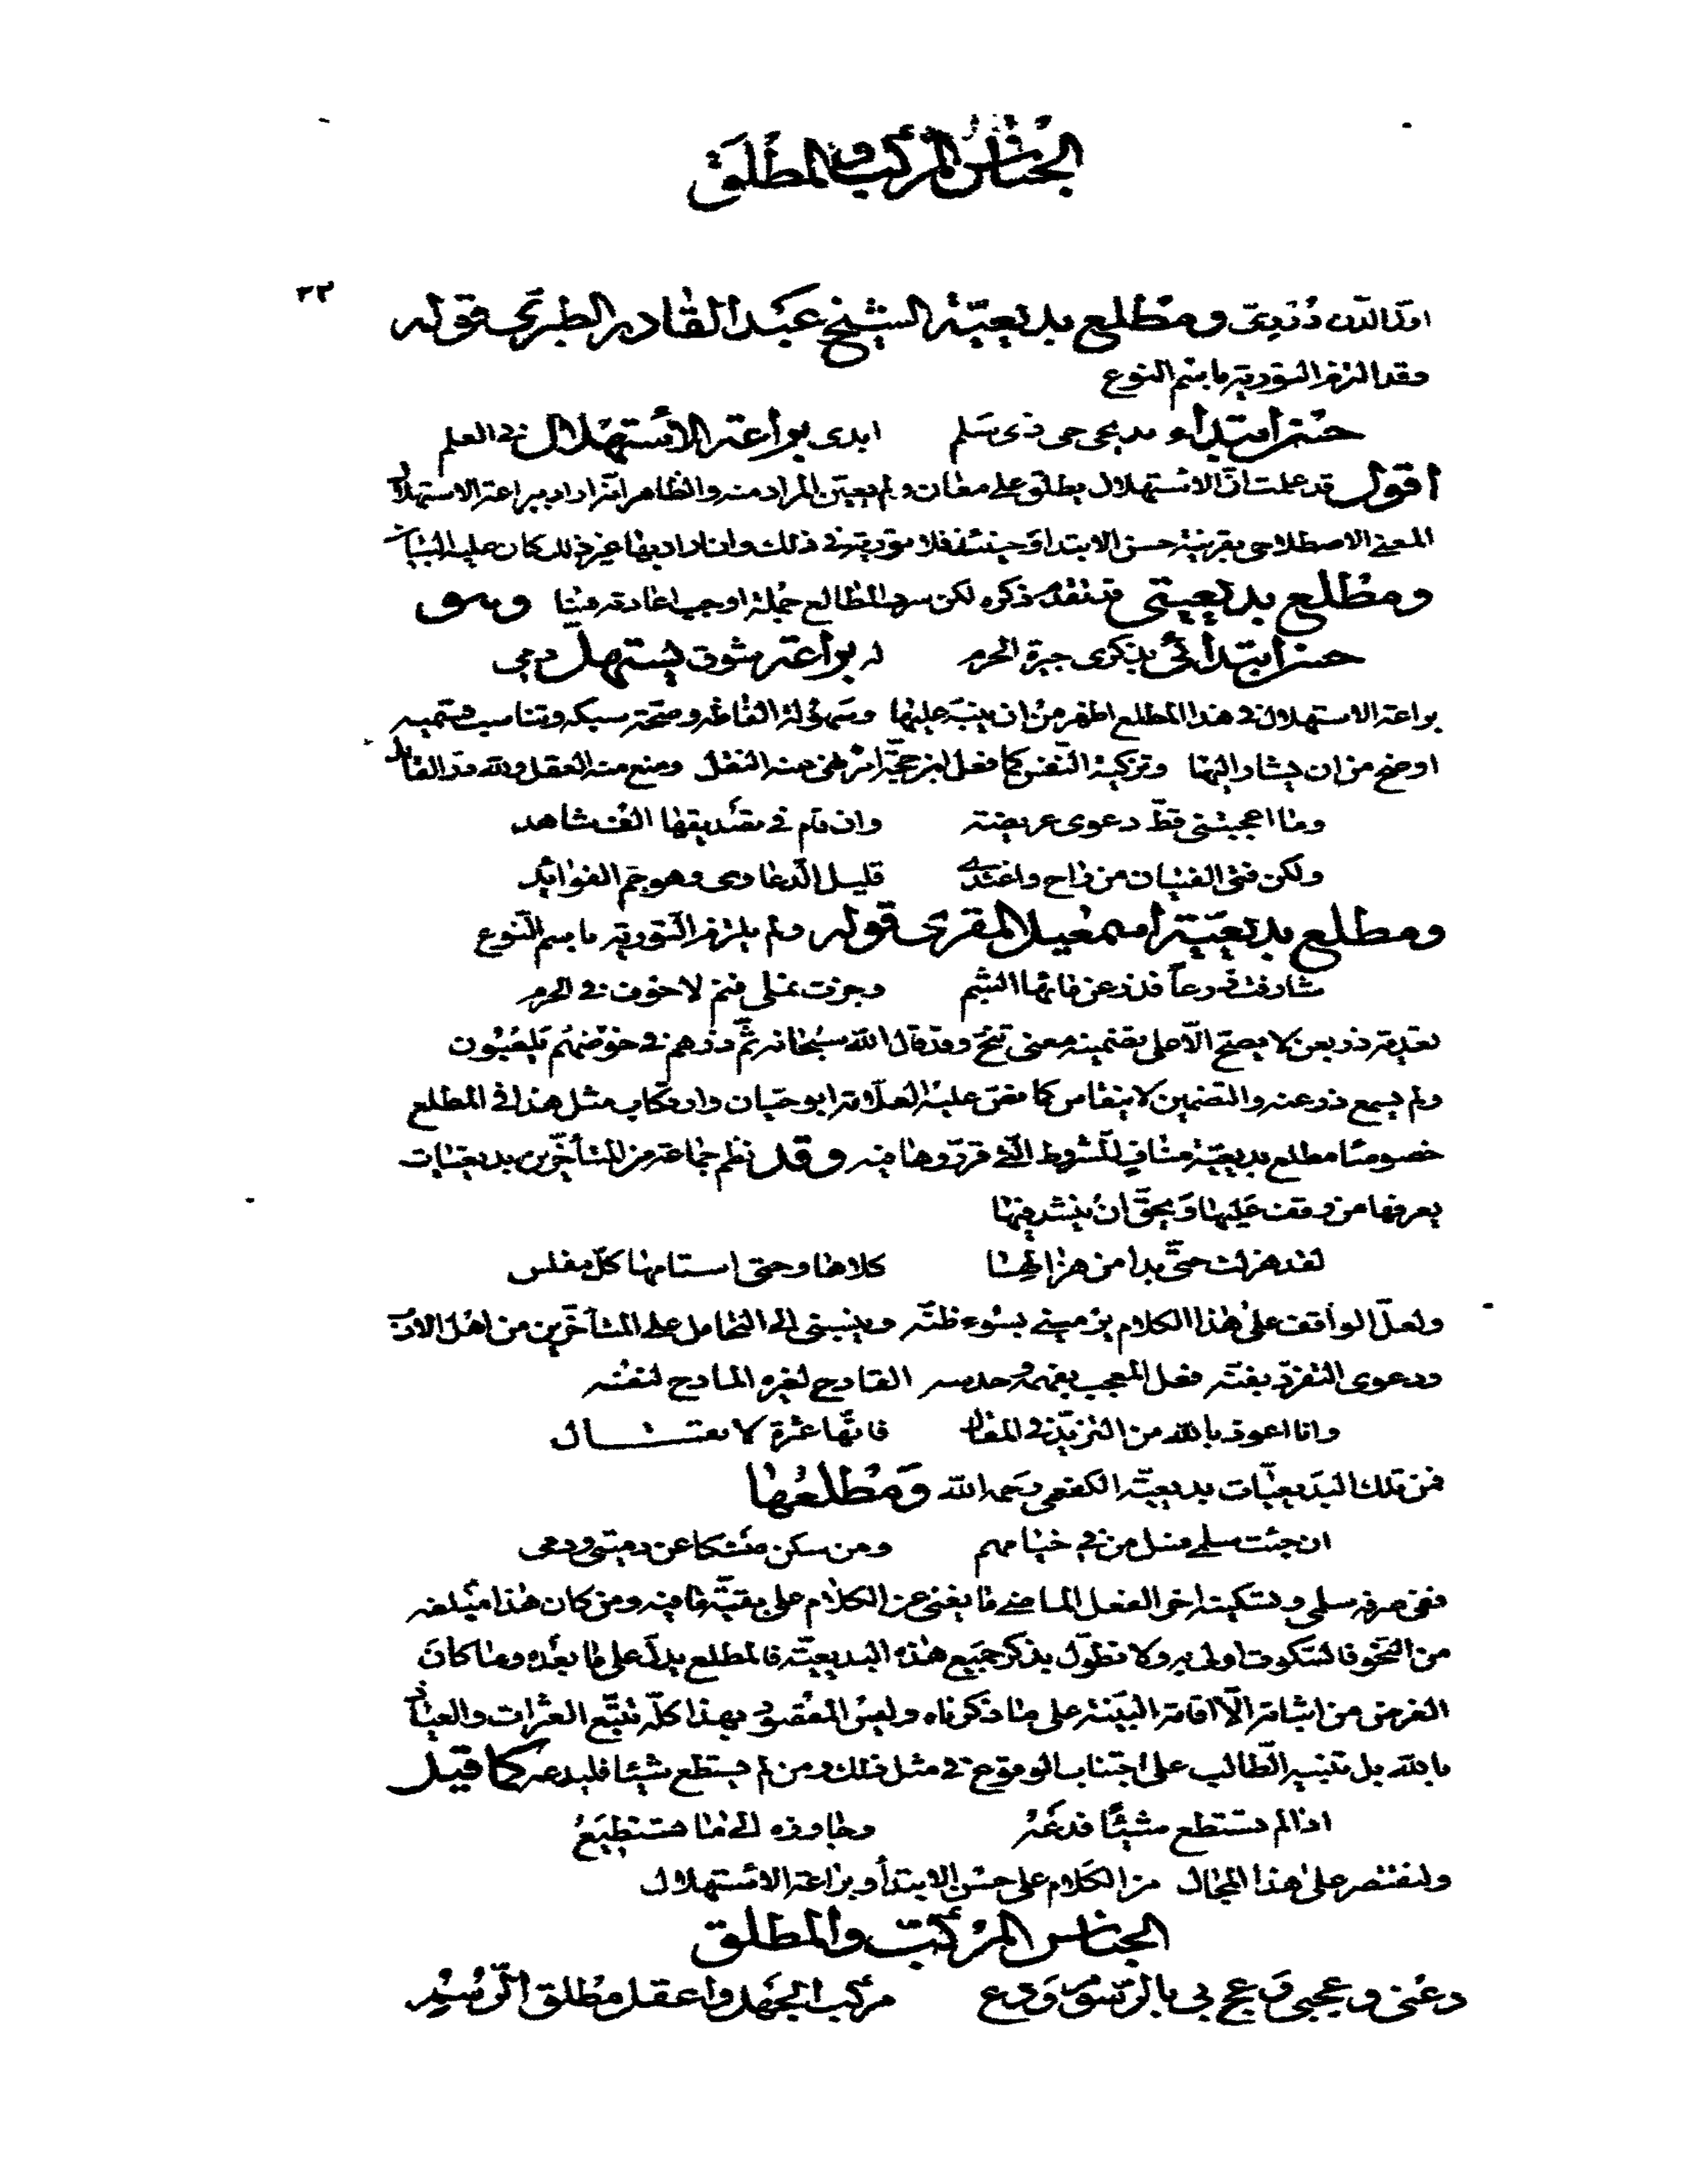 الجناس المركب والمطلق
٣٢
ومطلع بديعيّة الشيخ عبد القادر الطبري قوله
وقد التزم التورية باسم النوع
حسن ابتداء مديحي حي ذي سلم ابدى براعة الاستهلال في العلم
اقول قد علمت انّ الاستهلال يطلق على معان ولم يعيّن المراد منه والظاهر انّه اراد ببراعة الاستهلال
المعنى الاصطلاحى بقرينة حسن الابتدا وحينئذ فلا تورية في ذلك وان اراد بها غير ذلك كان عليه البيان
ومطلع بديعيتي قد تقدّم ذكره لكن سرد المطالع جملة اوجب اعادته هنا وهو
حسن ابتدائى بذكرى جيرة الحرم له براعة شوق يستهل دمي
براعة الاستهلال في هذا المطلع اظهر من ان ينبّه عليها وسهولة الفاظه وصحّة سبكه وتناسب قسميه
اوضح من ان يشار اليها وتزكية النفس كما فعل ابن حجّة امر نهى عنه النقل ومنع منه العقل ولله درّ القائل
وما اعجبتنى قطّ دعوى عريضة وان قام في تصديقها الف شاهد
ولكن فتى الفتيان من راح واغتدى قليل الدّعاوى وهو جم الفوائد
ومطلع بديعيّة اسمعيل المقري قوله ولم يلتزم التّورية باسم النّوع
شارفت ذرعاً فذر عن مائها الشبم وجزت نملى فنم لا خوف في الحرم
تعدية ذر بعن لا يصحّ الّا على تضمينه معنى تنحّ وقد قال الله سبحانه ثمّ ذرهم في خوضهم يلعبون
ولم يسمع ذر عنه والتضمين لا ينقاس كما نصّ عليه العلّامة ابو حيّان وارتكاب مثل هذا في المطلع
خصوصًا مطلع بديعيّة مناف للشروط الّتي قرّروها فيه وقد نظم جماعة من المتأخّرين بديعيّات
يعرفها من وقف عليها ويحقّ ان ينشد فيها
لقد هزلت حتّى بدا من هزالها كلاها وحتى استامها كلّ مفلس
ولعلّ الواقف على هذا الكلام يرمينى بسوء ظنّه وينسبنى الى التحامل على المتأخّرين من اهل الادب
ودعوى التفرّد بفنّه فعل المعجب بفهمه وحدسه القادح لغيره المادح لنفسه
وانا اعوذ بالله من التزيّد في المقال فانّها عثرة لا تقال
فمن تلك البديعيّات بديعيّة الكفعمى رحمه الله ومطلعها
ان جئت سلمى فسل من في خيامهم ومن سكن منسكا عن دميتى ودمى
ففى صرفه سلمى وتسكينه اخر الفعل الماضى ما يغنى عن الكلام على بقيّة ما فيه ومن كان هذا مبلغه
من النحو فالسكوت اولى به ولا نطوّل بذكر جميع هذه البديعيّة فالمطلع يدلّ على ما بعده وما كان
الغرض من اثباته الّا اقامة البيّنة على ما ذكرناه وليس المقصود بهذا كلّه تتبّع العثرات والعياذ
بالله بل تنبيه الطّالب على اجتناب الوقوع في مثل ذلك ومن لم يستطع شيئا فليدعه كما قيل
اذا لم تستطع شيئًا فدعه وجاوزه الى ما تستطيع
ولنقتصر على هذا المجال من الكلام على حسن الابتدا وبراعة الاستهلال
الجناس المركب والمطلق
دعنى وعجبى وعج بى بالرّسوم ودع مركب الجهل واعقل مطلق الرّسم